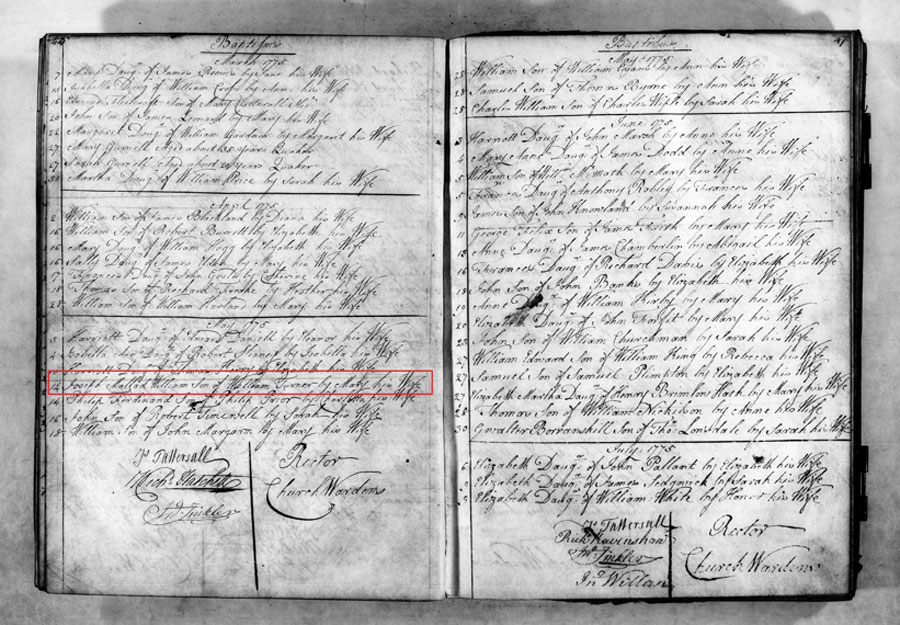 46
Baptisms
March 1775
7 Mary Daug. of James by Jane his Wife
15 Daug. of William by Ann his Wife
16 Son of Mary
20 John Son of James Lemard by Mary his Wife
22 Margaret Daug. of William Garland by Margaret his Wife
27 Mary Gurnell Aged about years Quaker
27 Sarah Gurnell Aged about years Quaker
31 Martha Daug. of William Price by Sarah his Wife
April 1775
2 William Son of James Blackland by Diana his Wife
16 William Son of Robert Burnell by Elizabeth his Wife
16 Mary Daug. of William Hogg by Elizabeth his Wife
16 Sally Daug. of James by Mary his Wife
17 Daug. of John Gould by Catherine his Wife
Thomas Son of Richard by Hesther his Wife
28 William Son of William Harland by Mary his Wife
May 1775
3 Harriott Daug. of Edward Daniell by Eleanor his Wife
4 Isabella Ann Daug. of Robert by Isabella his Wife
Harriott Daug. of Thomas by Elizabeth his Wife
14 Joseph Mallad William Son of William Turner by Mary his Wife
14 Philip Ferdinand Son of Philip Prior by his Wife
16 John Son of Robert by Sarah his Wife
18 William Son of John Margarm by Mary his Wife
Js. Tattersall Rector
Richd. Hatchett
Jno. Tinkler Church Wardens
47
Baptisms
May 1775
25 William Son of William Evans by Ann his Wife
28 Samuel Son of Thomas Byane by Ann his Wife
28 Charles William Son of Charles With by Sarah his Wife
June 1775
3 Harriott Daug. of John Marsh by Anne his Wife
4 Mary Anne Daug. of James Dodd by Anne his Wife
5 William Son of Will. McMath by Mary his Wife
5 Frances Daug. of Anthony Robley by Frances his Wife
5 James Son of John Knowland by Savannah his Wife
11 George Felix Son of James Firth by Mary his Wife
18 Anne Daug. of James Chamberlin by Abigail his Wife
16 Frances Daug. of Richard Dabis by Elizabeth his Wife
18 John Son of John Banks by Elizabeth his Wife
19 Anne Daug. of William Kirby by Mary his Wife
20 Elizabeth Daug. of John Forfit by Mary his Wife
John Son of William Churchman by Sarah his Wife
27 William Edward Son of William King by Rebecca his Wife
27 Samuel Son of Samuel Plimpton by Elizabeth his Wife
27 Elizabeth Martha Daug. of Henry Brimlow Hach by Mary his Wife
28 Thomas Son of William Nickilson by Anne his Wife
30 Gwalter Borranskill Son of Thos. Lonsdale by Sarah his Wife
July 1775
6 Elizabeth Daug. of John Pallant by Elizabeth his Wife
9 Elizabeth Daug. of James Sedgwick by Sarah his Wife
9 Elizabeth Daug. of William White by Honor his Wife
Js. Tattersall Rector
Richd. Ravenshaw
Jno. Tinkler Church Wardens
Jno. Willan